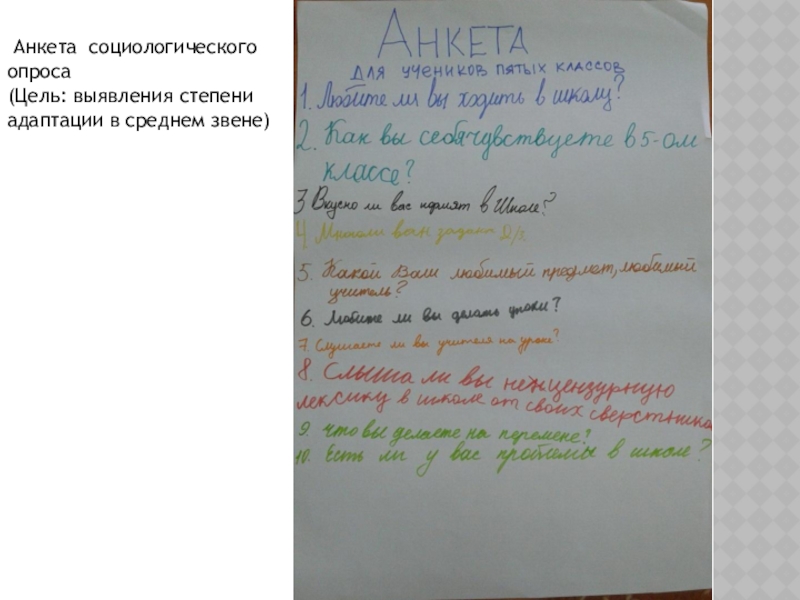 Анкета социологического
опроса
(Цель: выявления степени
адаптации в среднем звене)
АНКЕТА
ДЛЯ УЧЕНИКОВ ПЯТЫХ КЛАССОВ
1. Любите ли вы ходить в школу?
2. Как вы себя чувствуете в 5-ом
классе?
3 Вкусно ли вас кормят в школе?
4. вам Д/З.
5. Какой Ваш любимый предмет, любимый
учитель?
6. Любите ли вы делать уроки?
7. Слушаете ли вы учителя на уроке?
8. Слыша ли вы нецензурную
лексику в школе от своих
9. Что вы делаете на перемене?
10. Есть ли у вас проблемы в школе?